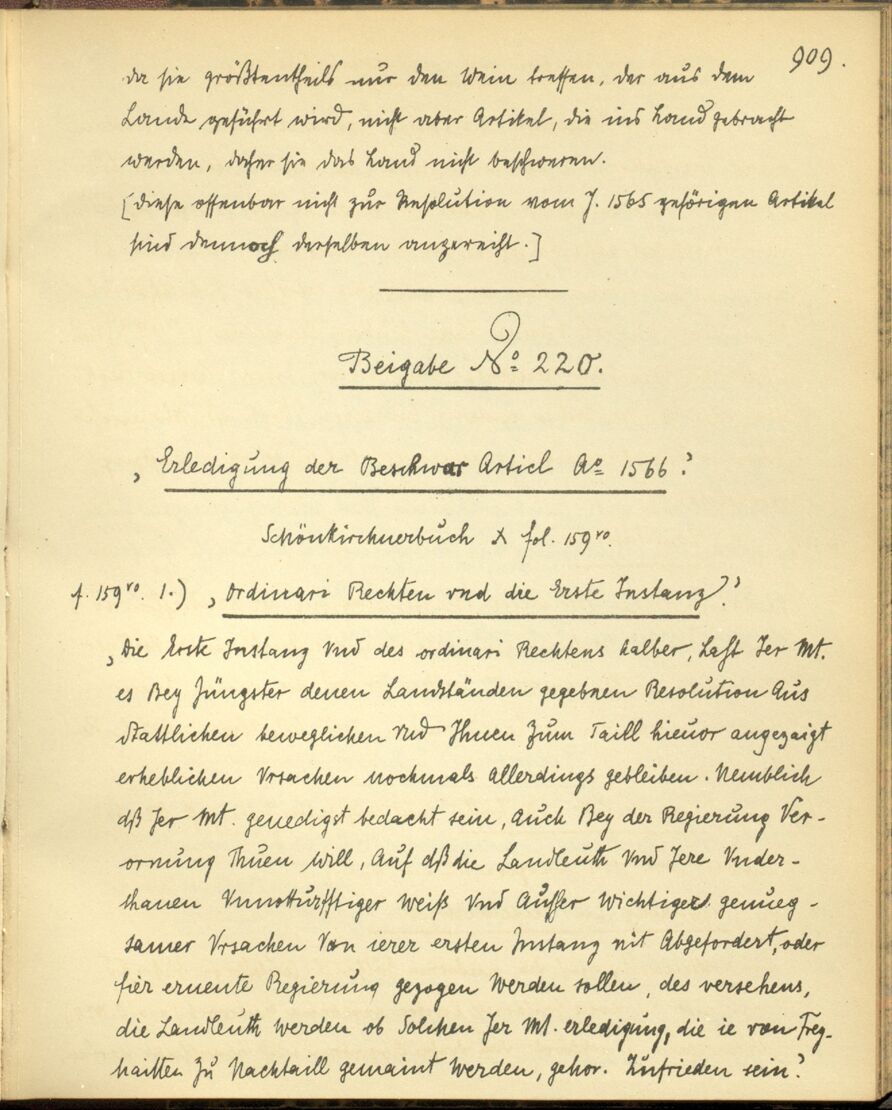 909.
da sie größtentheils nur den Wein treffen, der aus dem
Lande geführt wird, nicht aber Artikel, die ins Land gebracht
werden, daher sie das Land nicht beschweren.
[diese offenbar nicht zur Resolution vom J. 1565 gehörigen Artikel
sind dennoch derselben angereiht.]
Beigabe No 220.
„Erledigung der Beschwar Articl Ao 1566“
Schönkirchnerbuch X fol. 159ro.
f. 159ro. 1.) „Ordinari Rechten vnd die Erste Instanz“
„Die Erste Instanz Vnd des ordinari Rechtens halber, Laßt Jer Mt.
es Bey Jüngster denen Landständen gegebnen Resolution Aus
stattlichen beweglichen vnd Ihnen Zum Taill hieuor angezaigt
erheblichen Vrsachen nochmals Allerdings gebleiben. Nemblich
dß Jer Mt. genedigst bedacht sein, Auch Bey der Regierung Ver-
ornung Thuen will, Auf dß die Landleuth Vnd Jere Vnder-
thanen Vnnotturfftiger weiß Vnd Ausser Wichtiger genueg-
samer Vrsachen Von ierer ersten Instanz nit Abgefordert, oder
fier ernente Regierung gezogen Werden sollen, des versehens,
die Landleuth werden ob Solchen Jer Mt. erledigung, die ie von Frey-
haitten Zu Nachtaill gemaint Werden, gehor. Zufrieden sein“